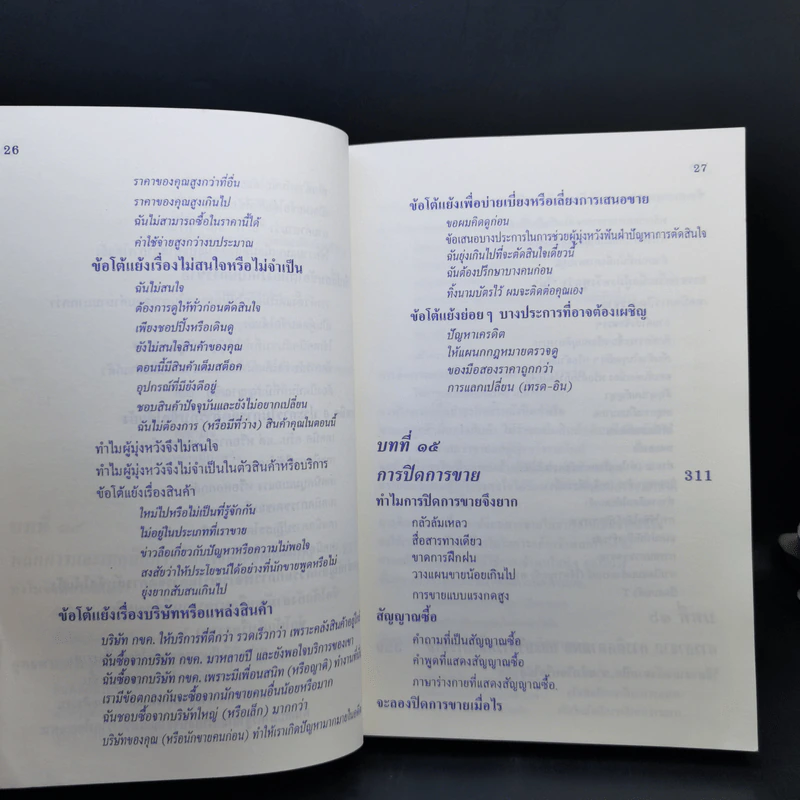 26
ราคาของคุณสูงกว่าที่อื่น
ราคาของคุณสูงเกินไป
ฉันไม่สามารถซื้อในราคานี้ได้
ค่าใช้จ่ายสูงกว่างบประมาณ
ข้อโต้แย้งเรื่องไม่สนใจหรือไม่จำเป็น
ฉันไม่สนใจ
ต้องการดูให้ทั่วก่อนตัดสินใจ
เพียงชอปปิ้งหรือเดินดู
ยังไม่สนใจสินค้าของคุณ
ตอนนี้มีสินค้าเต็มสต็อค
อุปกรณ์ที่มียังดีอยู่
ชอบสินค้าปัจจุบันและยังไม่อยากเปลี่ยน
ฉันไม่ต้องการ (หรือมีที่ว่าง) สินค้าคุณในตอนนี้
ทำไมผู้มุ่งหวังจึงไม่สนใจ
ทำไมผู้มุ่งหวังจึงไม่จำเป็นในตัวสินค้าหรือบริการ
ข้อโต้แย้งเรื่องสินค้า
ใหม่ไปหรือไม่เป็นที่รู้จักกัน
ไม่อยู่ในประเภทที่เราขาย
ข่าวลือเกี่ยวกับปัญหาหรือความไม่พอใจ
สงสัยว่าให้ประโยชน์ได้อย่างที่นักขายพูดหรือไม่
ยุ่งยากสับสนเกินไป
ข้อโต้แย้งเรื่องบริษัทหรือแหล่งสินค้า
บริษัท กขค. ให้บริการที่ดีกว่า รวดเร็วกว่า เพราะคลังสินค้าอยู่ใกล้
ฉันซื้อจากบริษัท กขค. มาหลายปี และยังพอใจบริการของเขา
ฉันซื้อจากบริษัท กขค. เพราะมีเพื่อนสนิท (หรือญาติ) ทำงานที่นั่น
เรามีข้อตกลงกันจะซื้อจากนักขายคนอื่นน้อยหรือมาก
ฉันชอบซื้อจากบริษัทใหญ่ (หรือเล็ก) มากกว่า
บริษัทของคุณ (หรือนักขายคนก่อน) ทำให้เราเกิดปัญหามากมายใน
27
ข้อโต้แย้งเพื่อบ่ายเบี่ยงหรือเลี่ยงการเสนอขาย
ขอผมคิดดูก่อน
ข้อเสนอบางประการในการช่วยผู้มุ่งหวังฟันฝ่าปัญหาการตัดสินใจ
ฉันยุ่งเกินไปที่จะตัดสินใจเดี๋ยวนี้
ฉันต้องปรึกษาบางคนก่อน
ทิ้งนามบัตรไว้ ผมจะติดต่อคุณเอง
ข้อโต้แย้งย่อยๆ บางประการที่อาจต้องเผชิญ
ปัญหาเครดิต
ให้แผนกกฎหมายตรวจดู
ของมือสองราคาถูกกว่า
การแลกเปลี่ยน (เทรด-อิน)
บทที่ ๑๕
การปิดการขาย 311
ทำไมการปิดการขายจึงยาก
กลัวล้มเหลว
สื่อสารทางเดียว
ขาดการฝึกฝน
วางแผนขายน้อยเกินไป
การขายแบบแรงกดสูง
สัญญาณซื้อ
คำถามที่เป็นสัญญาณซื้อ
คำพูดที่แสดงสัญญาณซื้อ
ภาษาร่างกายที่แสดงสัญญาณซื้อ
จะลองปิดการขายเมื่อไร